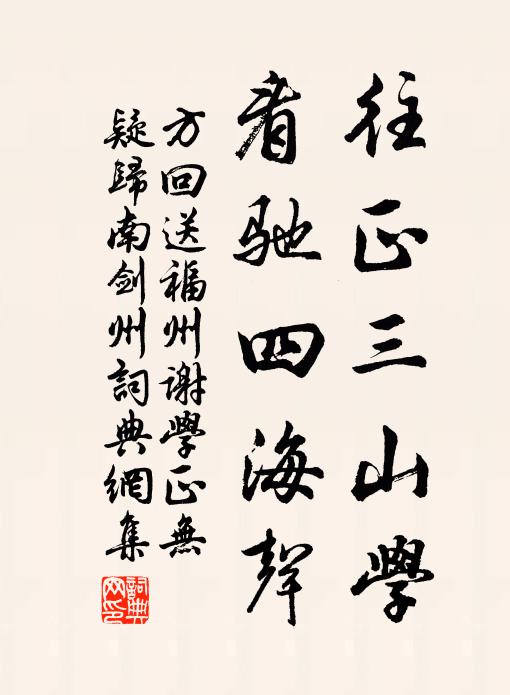 往正三山學
看馳四海聲
方回送福州谢學正無
疑歸南剑州詞典網集
詞典网印